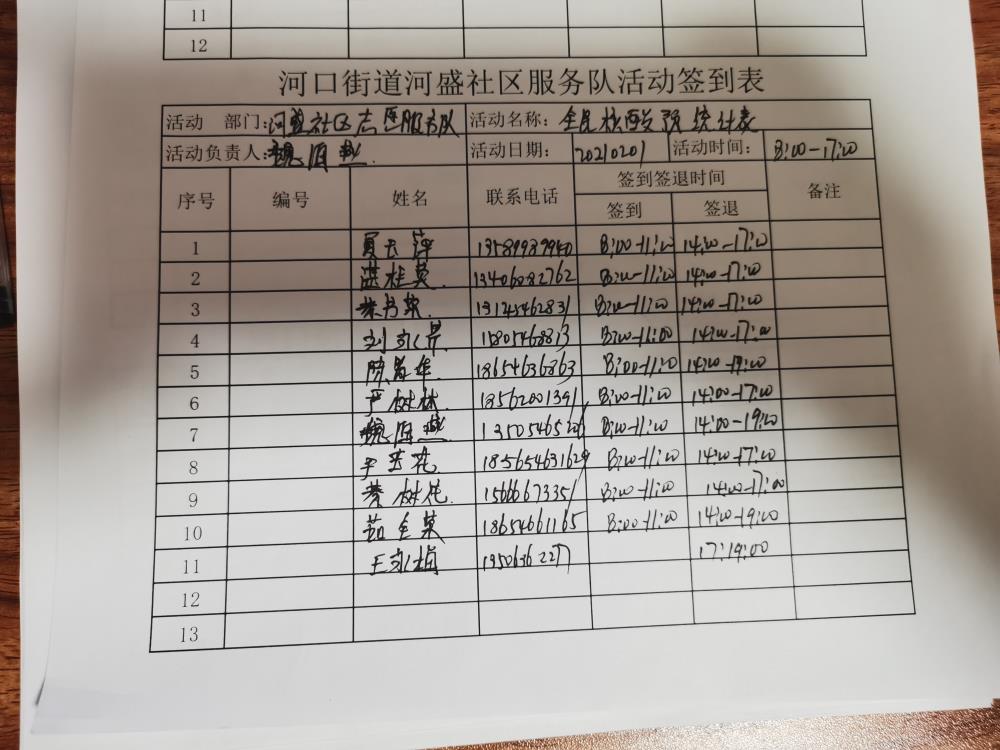 11
12
河口街道河盛社区服务队活动签到表
活动 部门:河盛社区志愿服务队 活动名称: 全民核酸 统计表
活动负责人: 活动日期: 20210201 活动时间: 8:00-17:00
序号 编号 姓名 联系电话 签到签退时间 备注
签到 签退
1 13589989940 8:00-11:00 14:00-17:00
2 洪桂英 13406082762 8:00-11:00 14:00-17:00
3 8:00-11:00 14:00-17:00
4 15805468813 8:00-11:00 14:00-17:00
5 18654636863 8:00-11:00 14:00-19:00
6 严树林 18562001391 8:00-11:00 14:00-17:00
7 13505465206 8:00-11:00 14:00-19:00
8 18565463162 8:00-11:00 14:00-17:00
9 树花 15666673351 8:00-11:00 14:00-17:00
10 18654661165 8:00-11:00 14:00-19:00
11 17:19:00
12
13